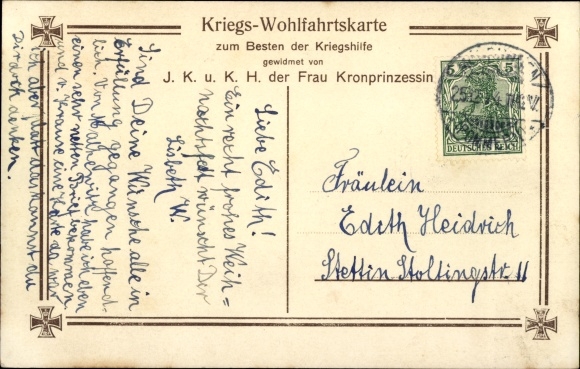 Kriegs-Wohlfahrtskarte
zum Besten der Kriegshilfe
gewidmet von
J. K. u. K. H. der Frau Kronprinzessin
5 5
DEUTSCHES REICH
Liebe Edith!
Ein recht frohes Weih=
nachtsfest wünscht Dir
Lisbeth W.
Sind Deine Wünsche alle in
Erfüllung gegangen hoffent-
lich. Von habe ich eben
einen sehr netten Brief bekommen
und v. Krause eine Karte da war
ich aber platt das kannst du
Dir doch denken.
Fräulein
Edith Heidrich
Stettin Stoltingstr. 11